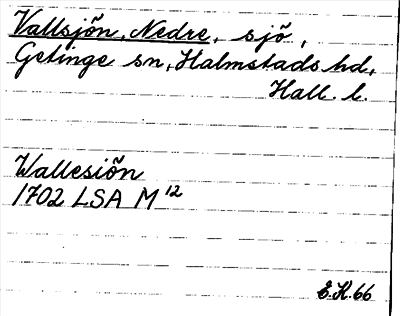 Vallsjön, Nedre, sjö,
Getinge sn, Halmstads hd,
Hall. l.
Wallesiön
1702 LSA M 12
E.K. 66